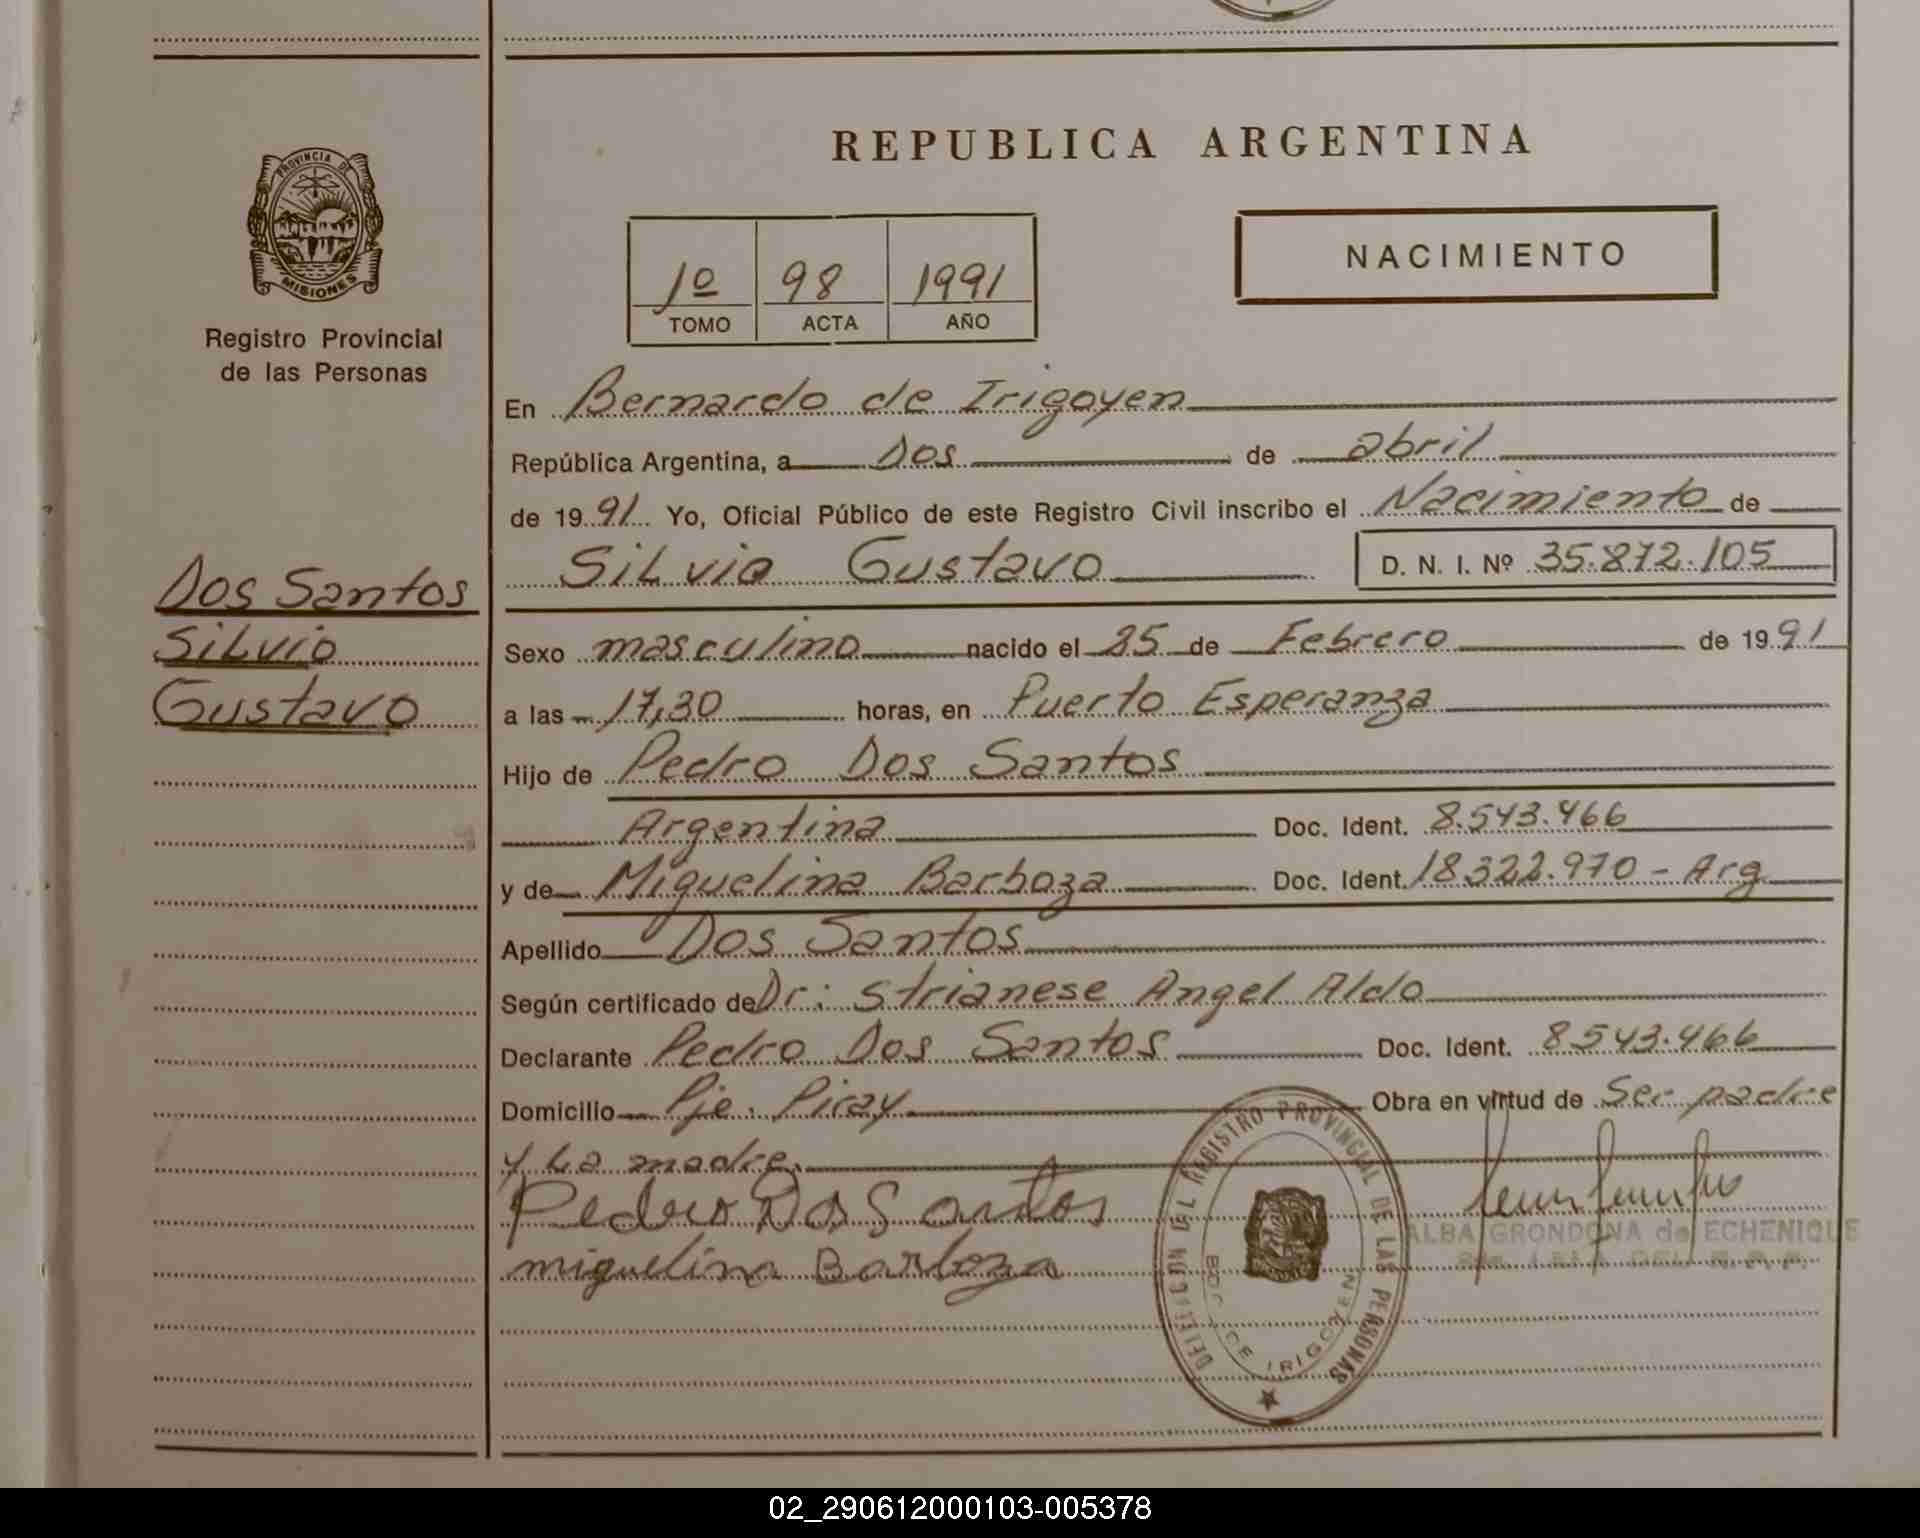 REPUBLICA ARGENTINA
PROVINCIA DE
MISIONES
Registro Provincial
de las Personas
1º 98 1991
TOMO ACTA AÑO
NACIMIENTO
En Bernardo de Irigoyen
República Argentina, a Dos de abril
de 1991 Yo, Oficial Público de este Registro Civil inscribo el Nacimiento de
Silvio Gustavo D. N. I. Nº 35.872.105
Dos Santos
Silvio
Gustavo
Sexo masculino nacido el 25 de Febrero de 1991
a las 17,30 horas, en Puerto Esperanza
Hijo de Pedro Dos Santos
Argentina Doc. Ident. 8.543.466
y de Miguelina Barboza Doc. Ident. 18.322.970 - Arg
Apellido Dos Santos
Según certificado de Dr: Strianese Angel Aldo
Declarante Pedro Dos Santos Doc. Ident. 8543.466
Domicilio Pje. Piray Obra en virtud de Ser padre
y La madre.
Pedro Dos Santos
miguelina Barboza
DELEGACION DEL REGISTRO PROVINCIAL DE LAS PERSONAS
BDO. DE IRIGOYEN
ALBA GRONDONA de ECHENIQUE
02_290612000103-005378